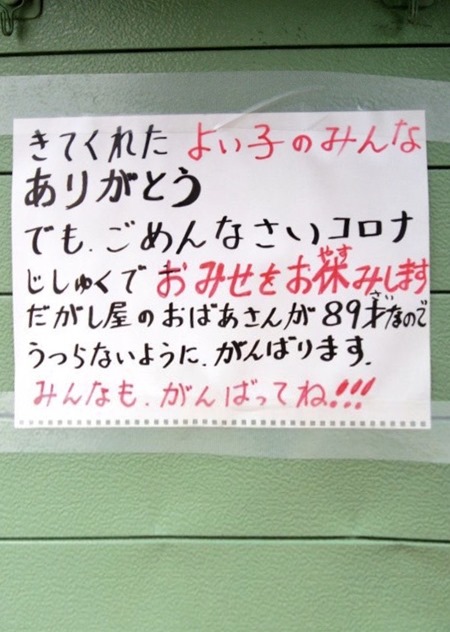 きてくれた よい子のみんな
ありがとう
でも、ごめんなさいコロナ
じしゅくで おみせをお休みします
やす
だがし屋のおばあさんが89才なので
さい
うつらないように、がんばります。
みんなも、がんばってね!!!